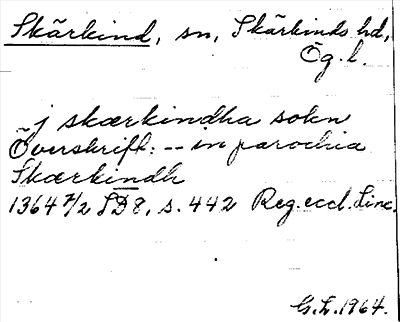 Skärkind, sn, Skärkinds hd,
Ög. l.
j skærkindha sokn
Överskrift: -- in parochia
Skærkindh
1364 7/2 SD 8, s. 442 Reg. eccl. Linc.
G. L. 1964.